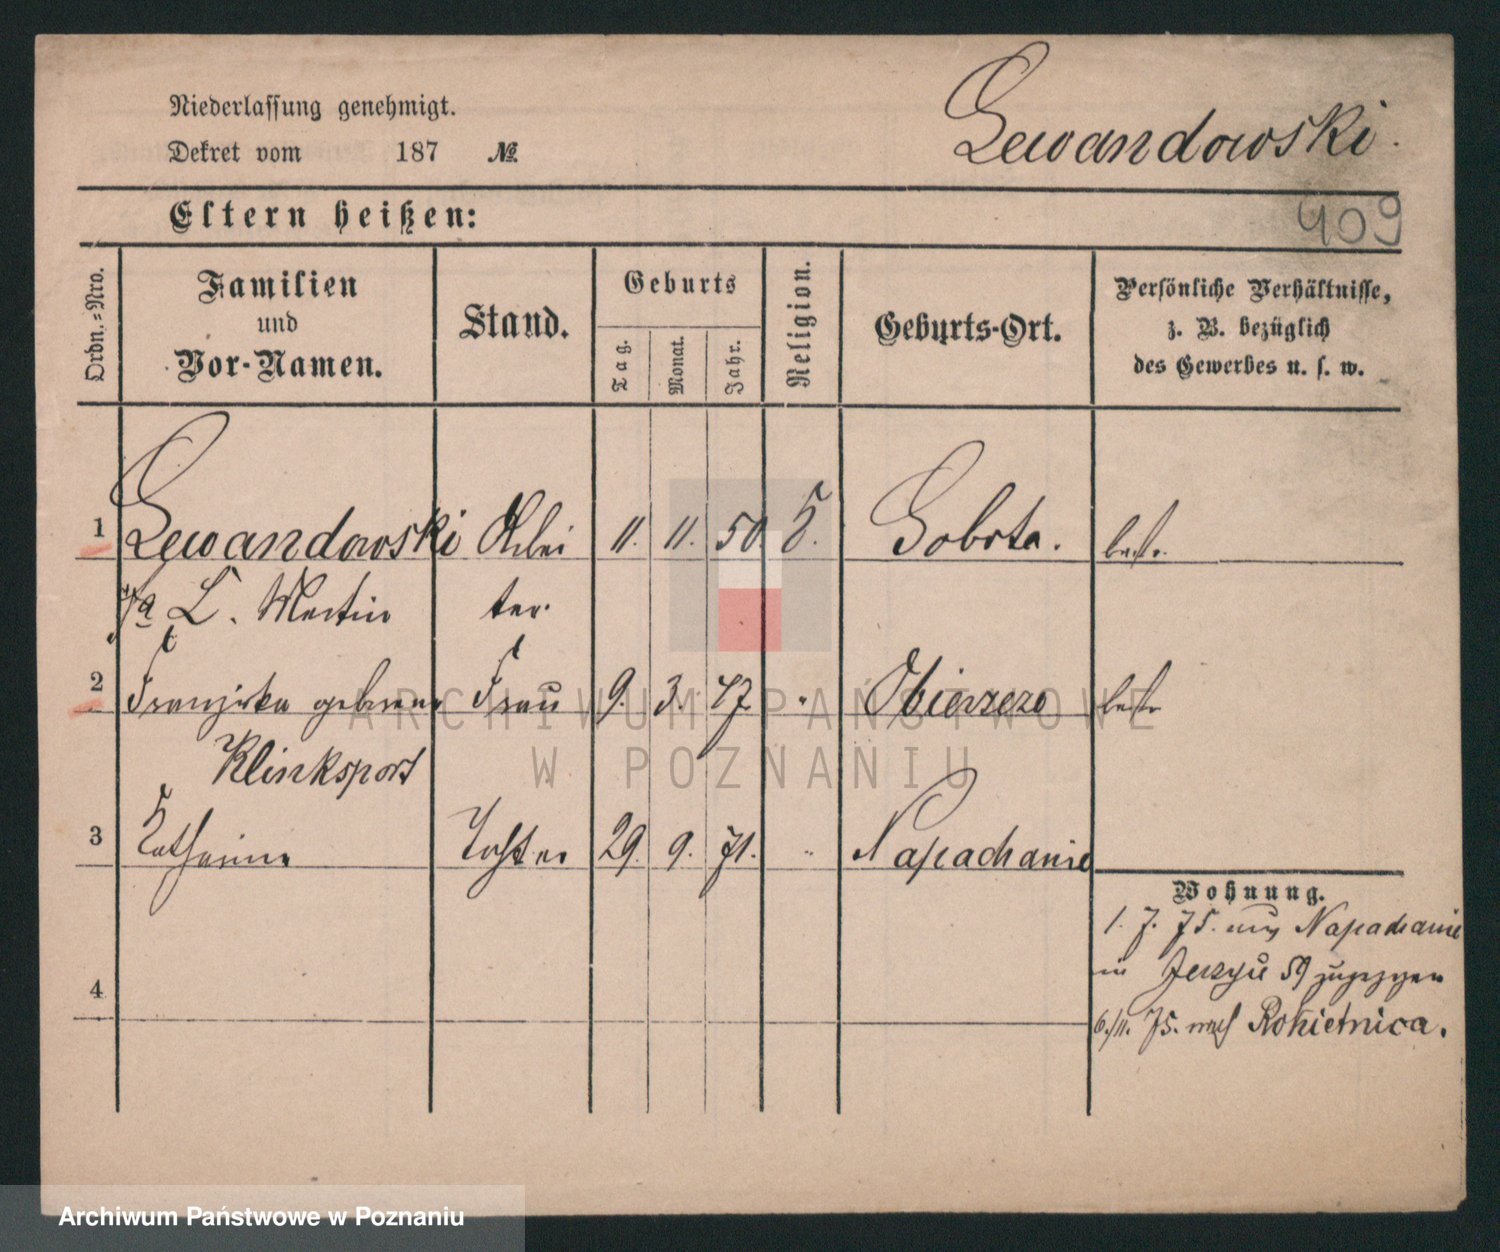 Niederlassung genehmigt.
Lewandowski.
Dekret vom 187 №
Eltern heißen:
409
Ordn.-Nro.
Familien
und
Vor-Namen.
Stand.
Geburts
Tag.
Monat.
Jahr.
Religion.
Geburts-Ort.
Persönliche Verhältnisse,
z. B. bezüglich
des Gewerbes u. s. w.
1 Lewandowski Arbei 11. 11. 50. K. Sobota.
L. Martin ter.
2 Franziska geborene Frau 9. 3. 47 " Obierzezo
Klinksport
3 Katharina Tochter 29. 9. 71. " Napachanie
Wohnung.
1. 7. 75. aus Napachanie
in Jerzyce 59 zugezogen
4
6./11. 75. nach Rokietnica.
ARCHIWUM PAŃSTWOWE
W POZNANIU
Archiwum Państwowe w Poznaniu